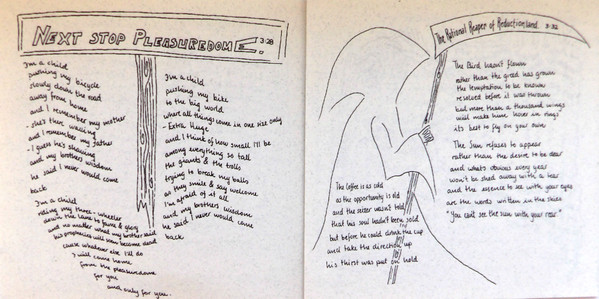 NEXT STOP PLEASUREDOME. 3:28
I'm a child
pushing my bicycle
slowly down the road
away from home
and I remember my mother
- she's there waving
and I remember my father
- I guess he's shaving
and my brothers wisdom
he said I never would come
back
I'm a child
riding my three-wheeler
down the lane to fame & glory
and no matter what my brother said
his prophecies will soon become dead
cause whatever else I'll do
I will come home
from the pleasuredome
for you
and only for you.
I'm a child
pushing my bike
to the big world
where all things come in one size only
- Extra Huge
and I think of how small I'll be
among everything so tall
the giants & the trolls
trying to break my balls
as they smile & say welcome
I'm afraid of it all
and my brothers wisdom
he said I never would come
back
The Rational Reaper of Reductionland. 3:32
The Coffee is as cold
as the opportunity is old
and the seizer wasn't told
that his soul hadn't been sold
but before he could drink the cup
and take the direction up
his thirst was put on hold
The Bird hasn't flown
rather than the greed has grown
the temptation to be known
resolved before it was thrown
but more than a thousand wings
will make him hover in rings
its best to fly on your own
The Sun refuses to appear
rather than the desire to be dear
and whats obvious every year
won't be shed away with a tear
and the essence to see with your eyes
are the words written in the skies
"You can't see the sun with your rear"